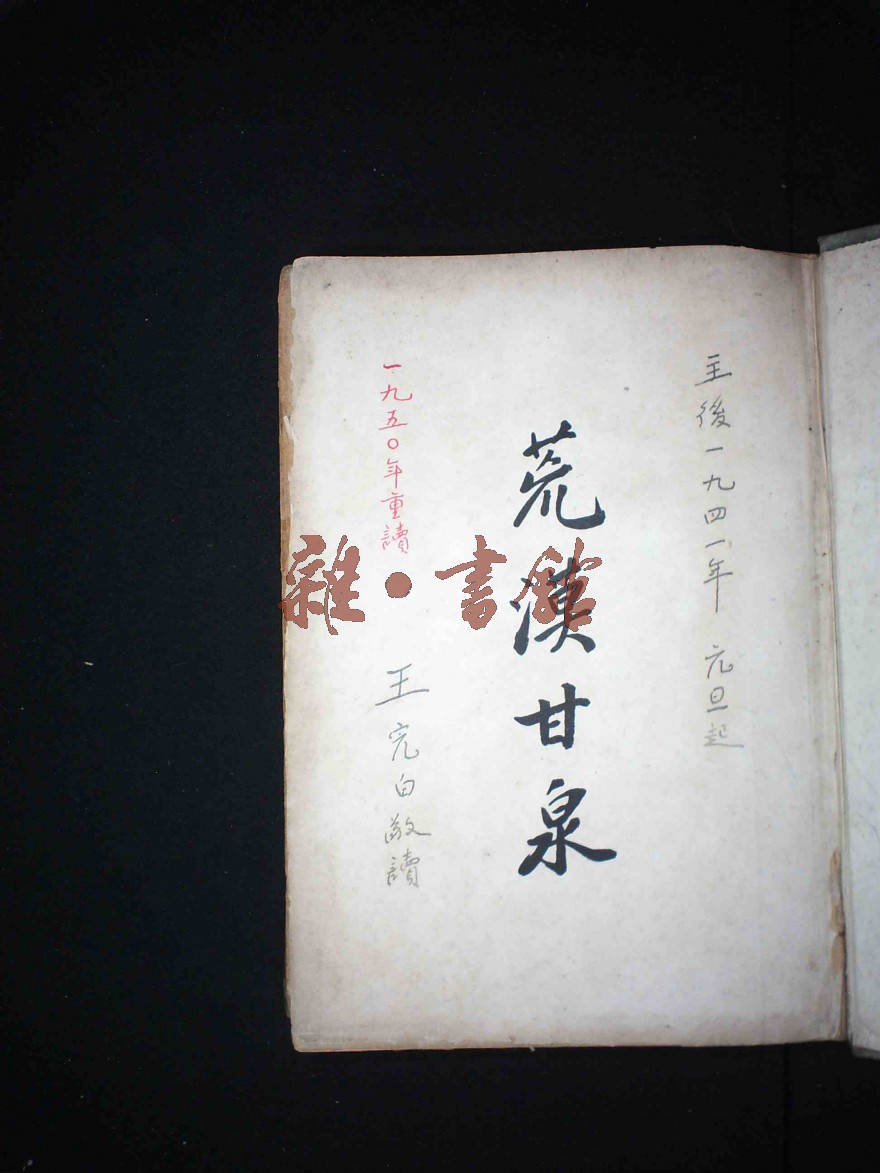 主後一九四一年 元旦起
荒漠甘泉
一九五〇年重讀
王完白敬讀
雜·書館